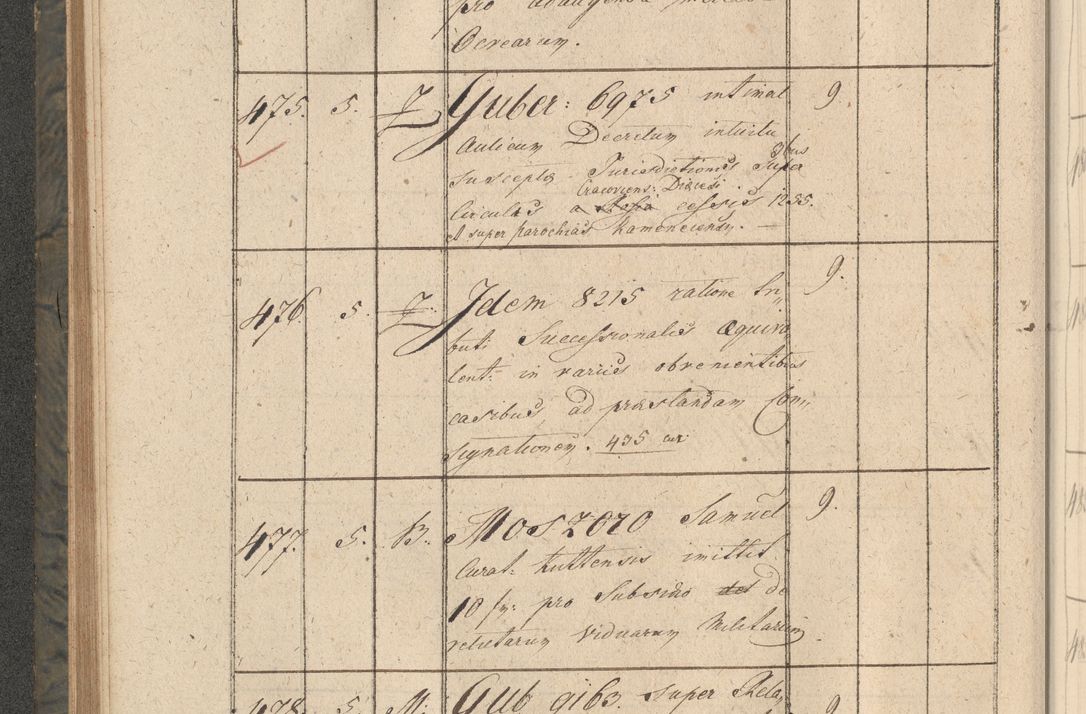 pro
Ocrearum.
475. 5. Guber: 6975 intimat 9
Aulicum Decretum intuitu
susceptæ Jurisdictionis super
Cracoviens: Diæcesi
Circulis a cessis 1255.
et super parochias Kamonciensem. —
476. 5. Idem 8215 ratione tri 9.
buti Successionalis æquiva
lent: in variis obvenientibus
casibus ad præstandam Con„
signationem. 435 cur:
477. 5. B. Moszoro Samuel 9.
Curat: Kuttensis imittit
10 fr: pro Subsidio det de
relictarum Viduarum Militarium
478. 5. M: Gub 9163 super Rela, 9